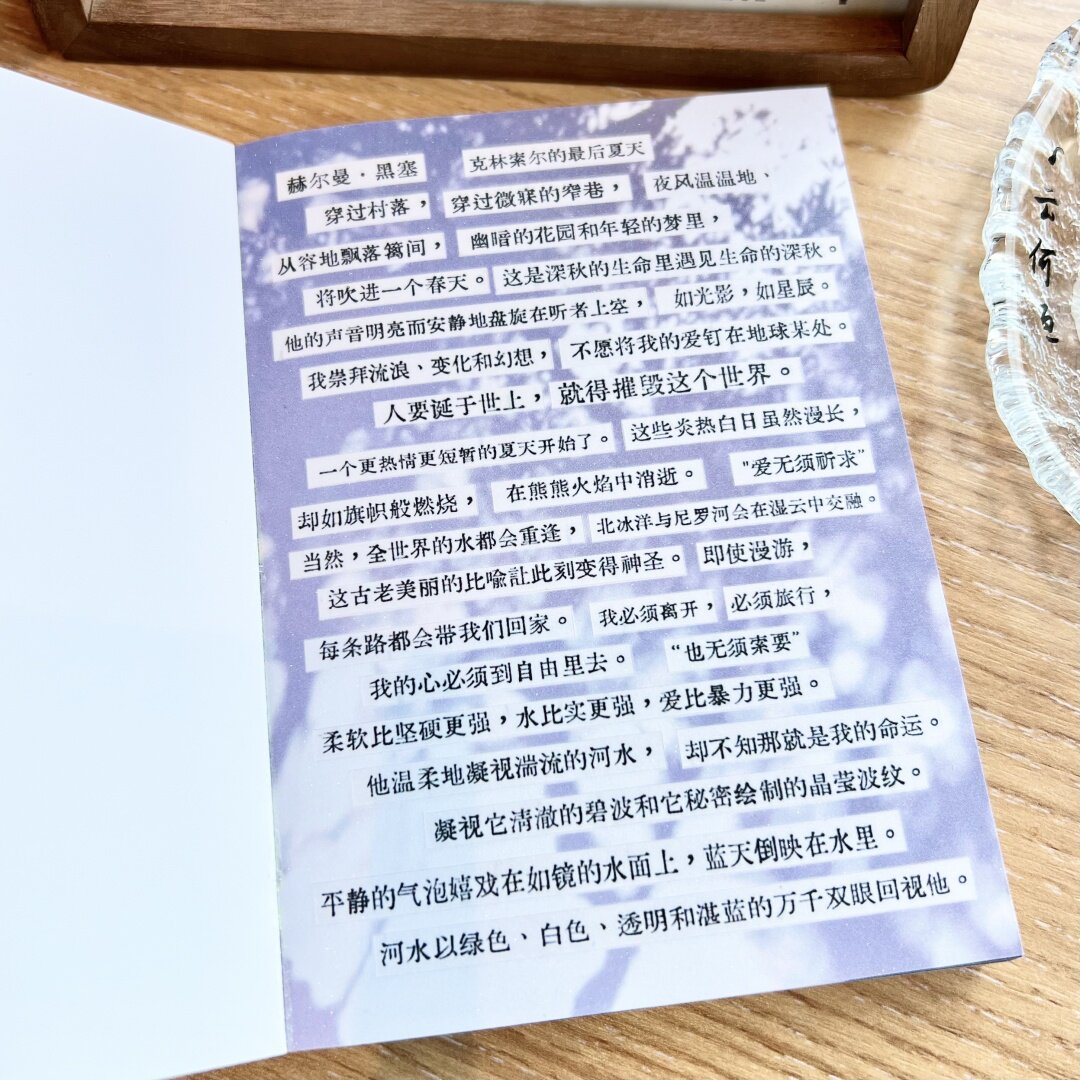 赫尔曼·黑塞 克林索尔的最后夏天
穿过村落， 穿过微寐的窄巷， 夜风温温地、
从容地飘落篱间， 幽暗的花园和年轻的梦里，
将吹进一个春天。 这是深秋的生命里遇见生命的深秋。
他的声音明亮而安静地盘旋在听者上空， 如光影，如星辰。
我崇拜流浪、变化和幻想， 不愿将我的爱钉在地球某处。
人要诞于世上， 就得摧毁这个世界。
一个更热情更短暂的夏天开始了。 这些炎热白日虽然漫长，
却如旗帜般燃烧， 在熊熊火焰中消逝。 "爱无须祈求"
当然，全世界的水都会重逢， 北冰洋与尼罗河会在湿云中交融。
这古老美丽的比喻让此刻变得神圣。 即使漫游，
每条路都会带我们回家。 我必须离开， 必须旅行，
我的心必须到自由里去。 “也无须索要”
柔软比坚硕更强，水比实更强，爱比暴力更强。
他温柔地凝视湍流的河水， 却不知那就是我的命运。
凝视它清澈的碧波和它秘密绘制的晶莹波纹。
平静的气泡嬉戏在如镜的水面上，蓝天倒映在水里。
河水以绿色、白色、透明和湛蓝的万千双眼回视他。
云何